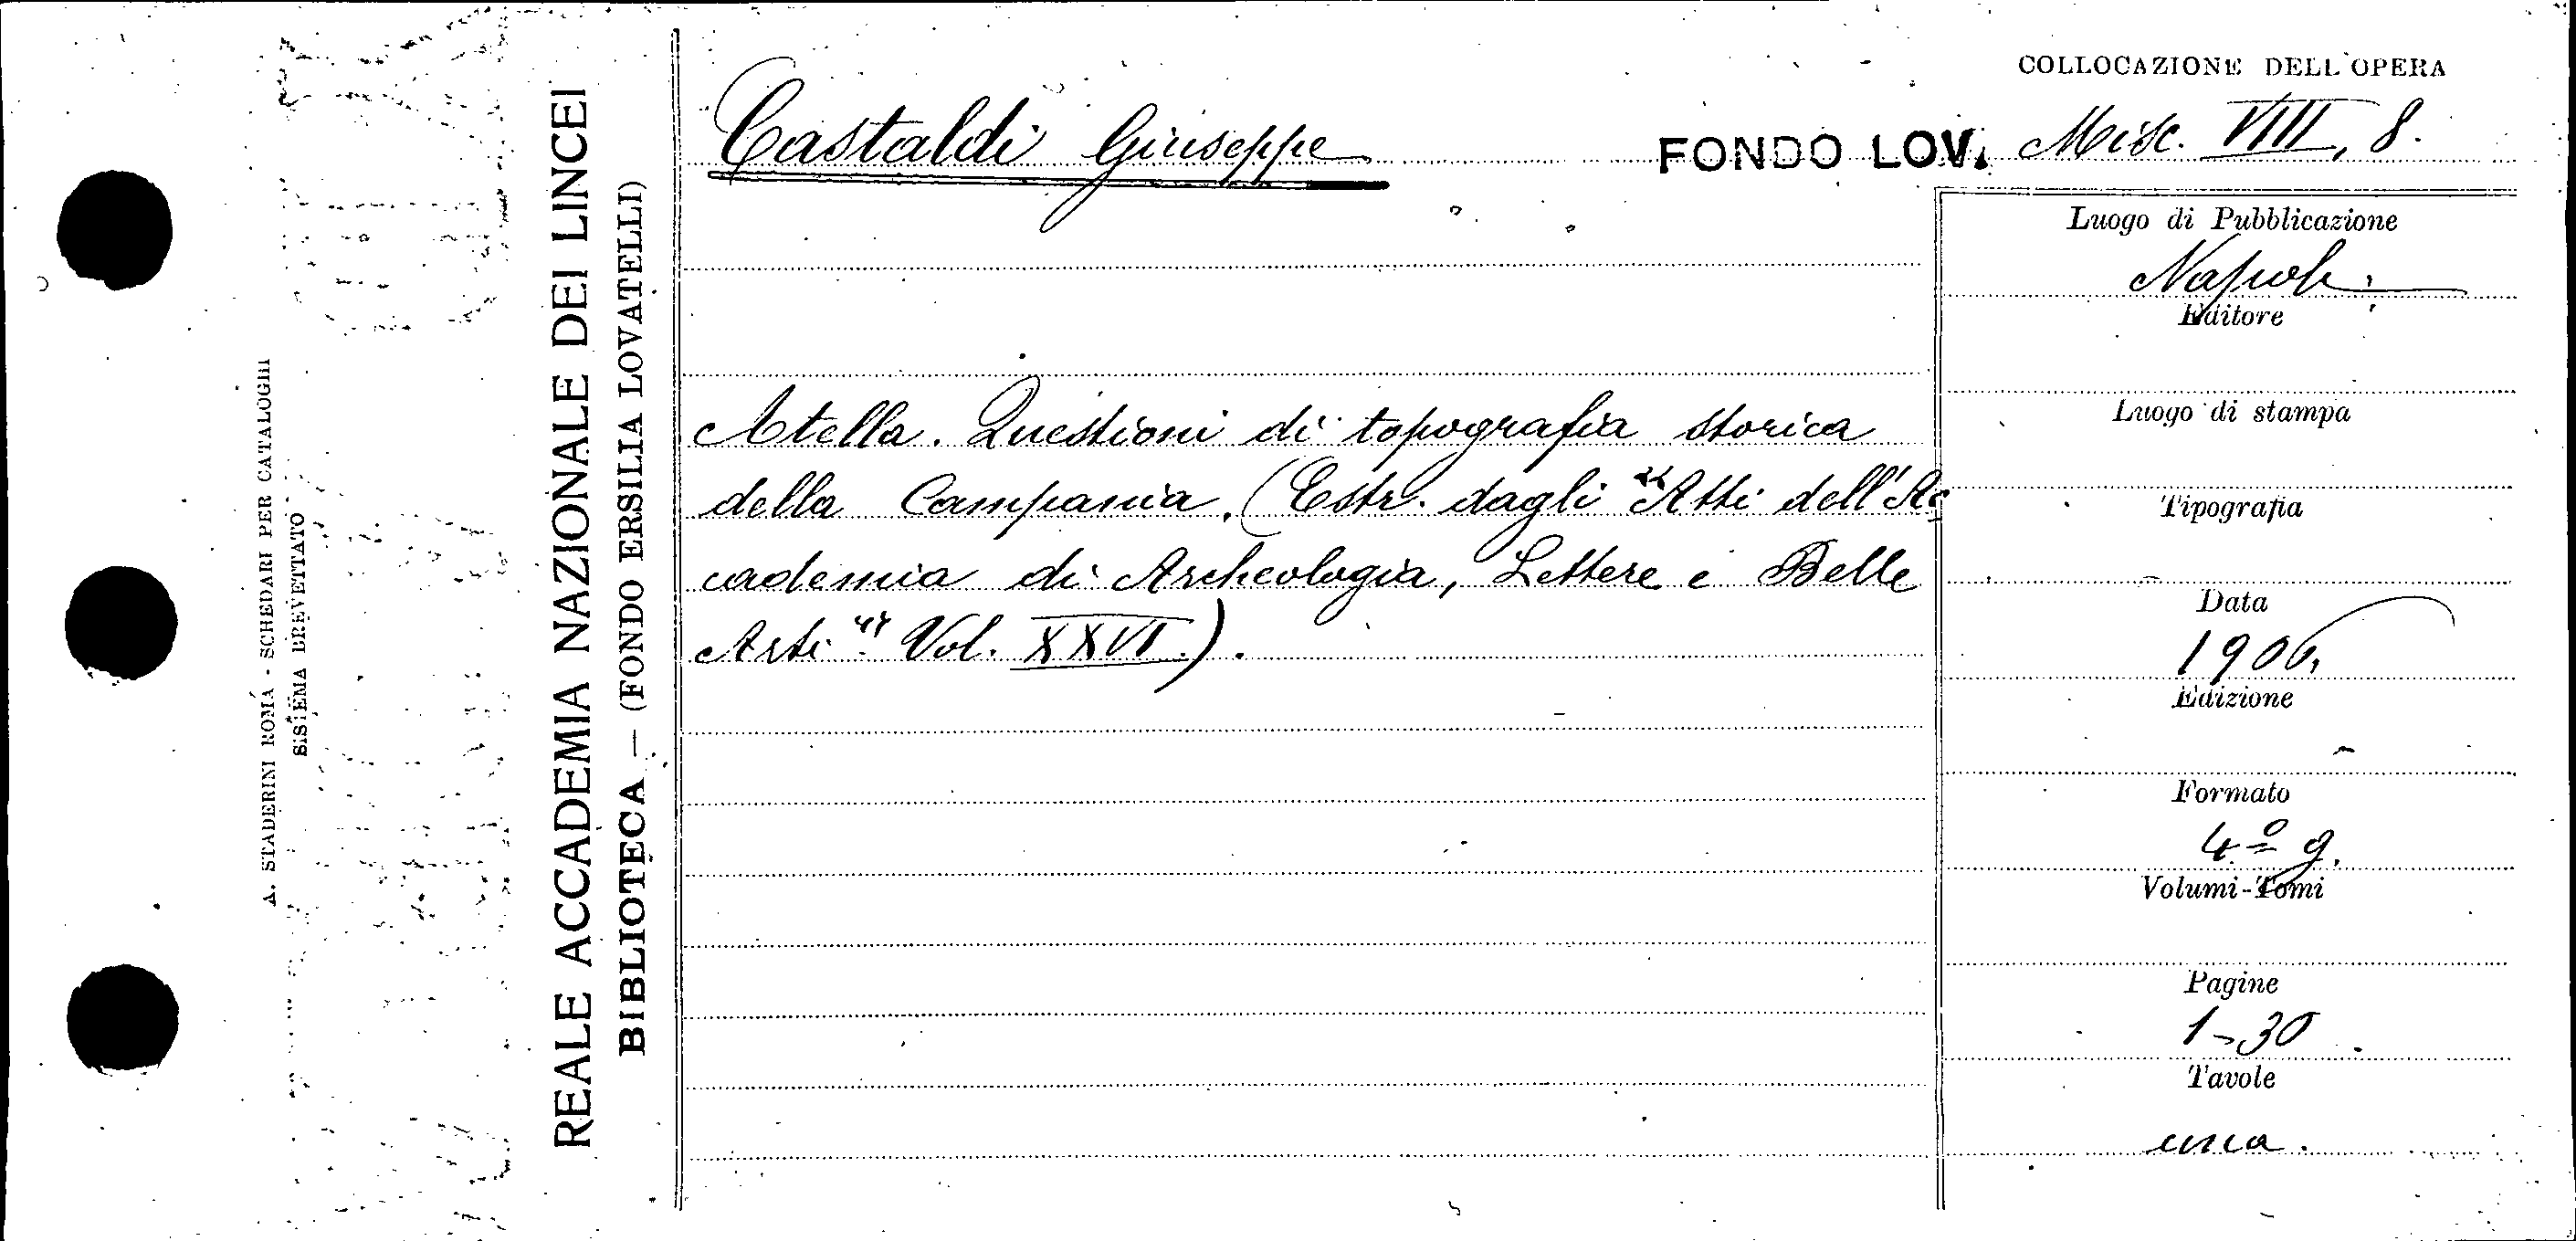 COLLOCAZIONE DELL'OPERA
Castaldi Giuseppe
FONDO LOV. Misc. VIII, 8.
Atella. Questioni di topografia storica
della Campania. (Estr. dagli "Atti dell'Ac
cademia di Archeologia, Lettere e Belle
Arti" Vol. XXVI.).
Luogo di Pubblicazione
Napoli
Editore
Luogo di stampa
Tipografia
Data
1906.
Edizione
Formato
4º g.
Volumi-Tomi
Pagine
1-30
Tavole
una.
REALE ACCADEMIA NAZIONALE DEI LINCEI
BIBLIOTECA — (FONDO ERSILIA LOVATELLI)
A. STADERINI ROMA - SCHEDARI PER CATALOGHI
SISTEMA BREVETTATO